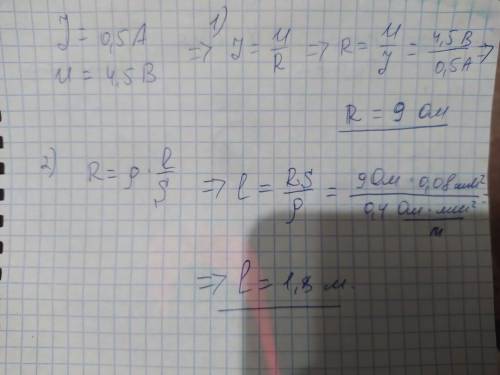 J = 0,5A
U = 4,5 В
1)
=> J = U/R => R = U/J = 4,5 В/0,5A =>
R = 9 Ом
2)
R = ρ · l/S => l = RS/ρ = 9 Ом · 0,08 мм²/0,4 Ом · мм²/м
=> l = 1,8 м.